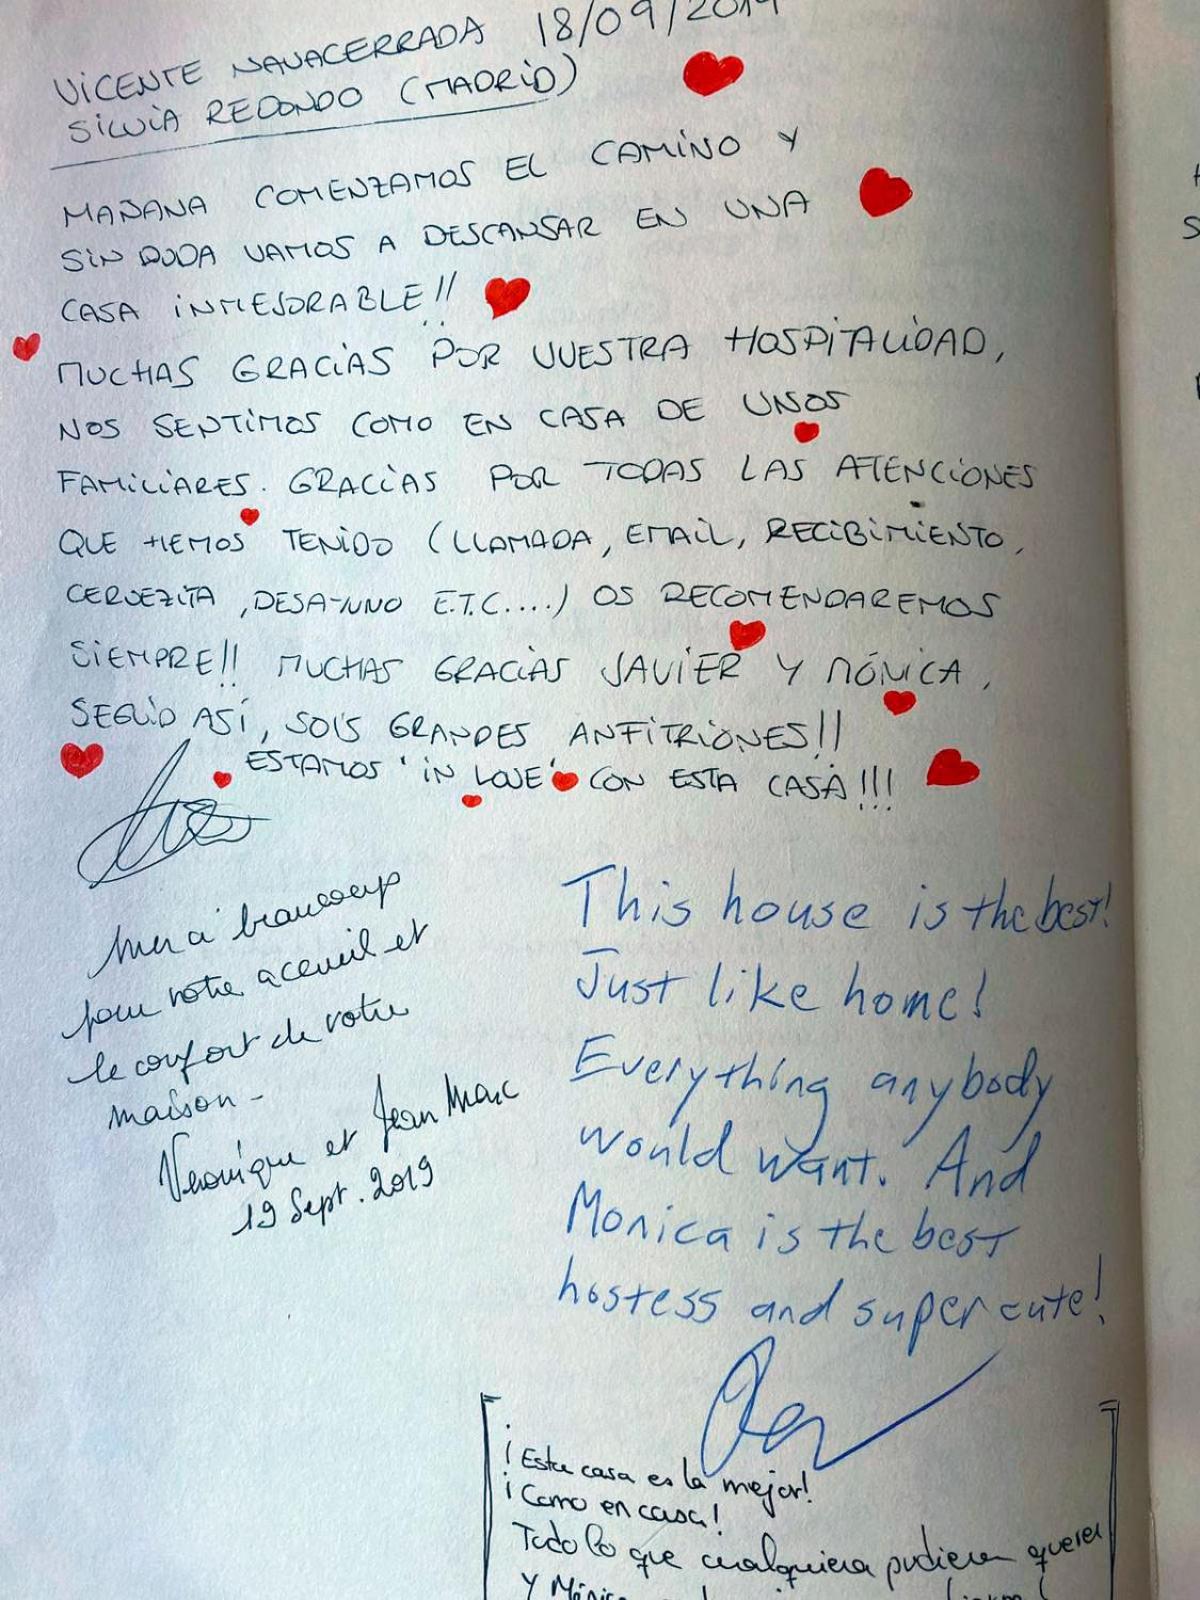 VICENTE NAVACERRADA 18/09/2019
SILVIA REDONDO (MADRID)
MAÑANA COMENZAMOS EL CAMINO Y
SIN DUDA VAMOS A DESCANSAR EN UNA
CASA INMEJORABLE!!
MUCHAS GRACIAS POR VUESTRA HOSPITALIDAD,
NOS SENTIMOS COMO EN CASA DE UNOS
FAMILIARES. GRACIAS POR TODAS LAS ATENCIONES
QUE HEMOS TENIDO (LLAMADA, EMAIL, RECIBIMIENTO,
CERVEZITA, DESAYUNO E.T.C....) OS RECOMENDAREMOS
SIEMPRE!! MUCHAS GRACIAS JAVIER Y MÓNICA,
SEGUID ASÍ, SOIS GRANDES ANFITRIONES!!
ESTAMOS 'IN LOVE' CON ESTA CASA!!!
Merci beaucoup
pour votre accueil et
le confort de votre
maison -
Veronique et Jean Marc
19 Sept. 2019
This house is the best!
Just like home!
Everything anybody
would want. And
Monica is the best
hostess and super cute!
¡Esta casa es la mejor!
¡Como en casa!
Todo lo que cualquiera pudiera querer
Y Mónica